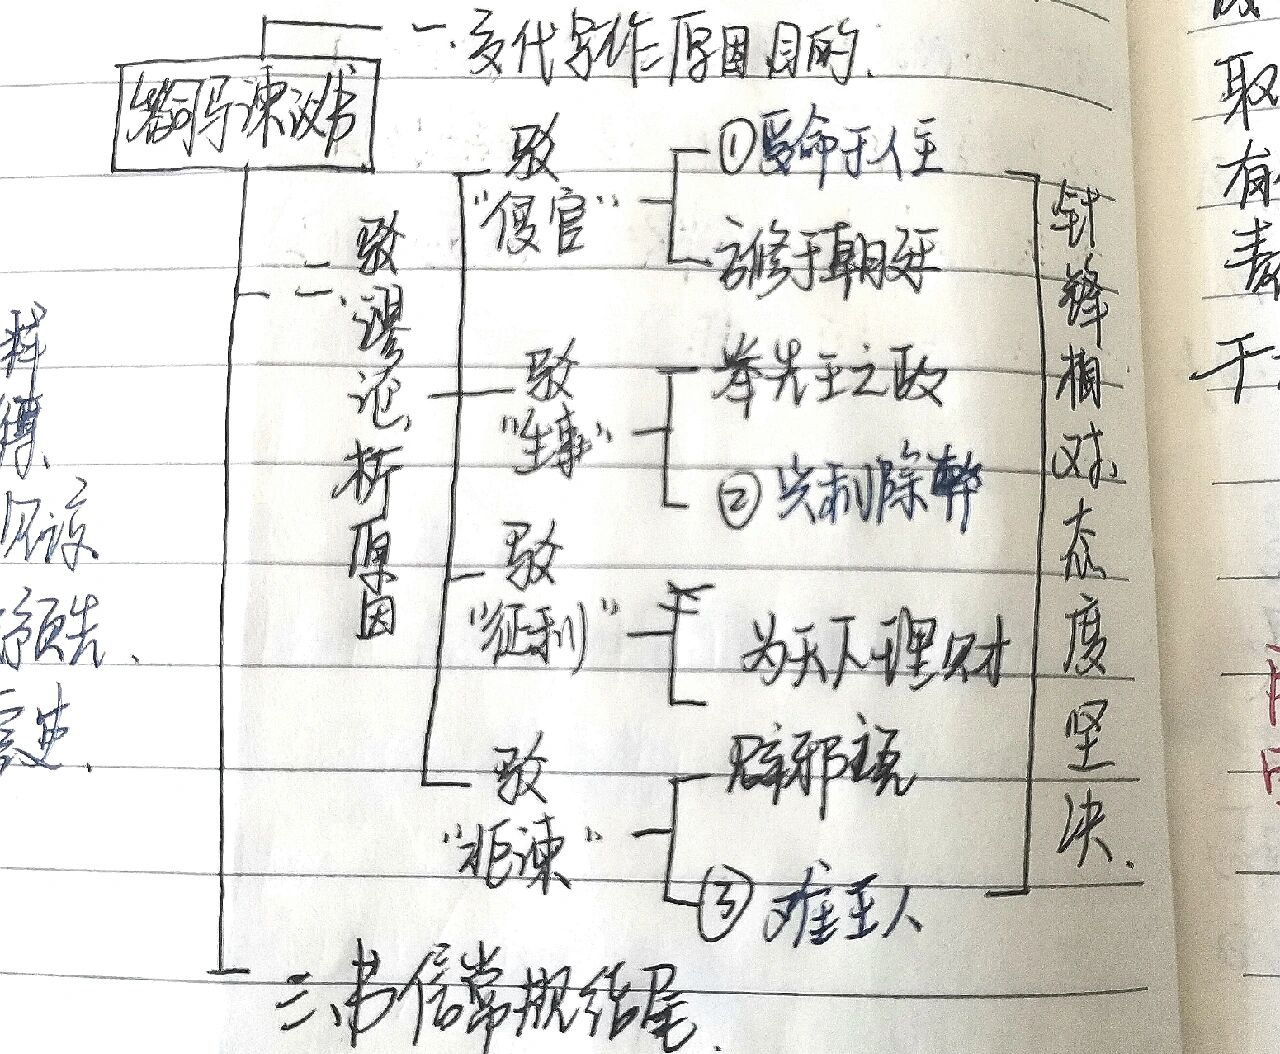 一、交代写作原因目的.
答司马谏议书
二、驳谬论析原因
驳"侵官"
①受命于人主
议修于朝廷
驳"生事"
举先王之政
②兴利除弊
驳"征利"
为天下理财
驳"拒谏"
辟邪说
③难壬人
针锋相对态度坚决.
三、书信常规结尾.
取
有
责
干